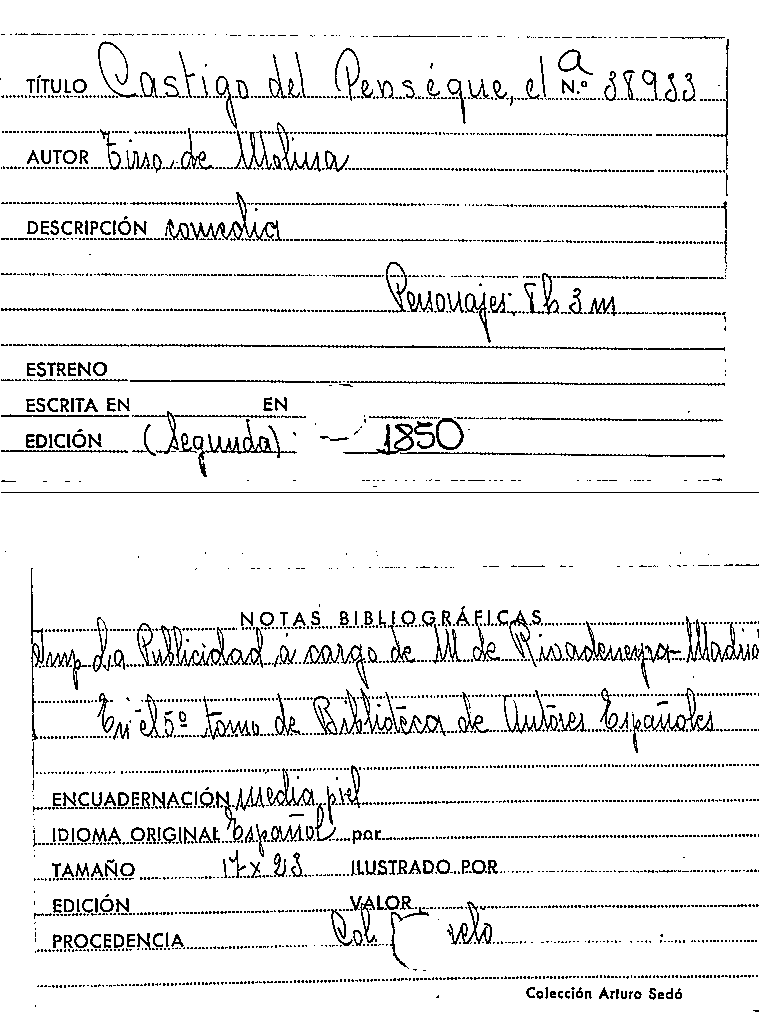 TÍTULO Castigo del Penséque, el a N.º 38933
AUTOR Tirso de Molina
DESCRIPCIÓN comedia
Personajes: 8 h 3 m
ESTRENO
ESCRITA EN EN
EDICIÓN (Segunda) - 1850
NOTAS BIBLIOGRÁFICAS
Imp La Publicidad á cargo de M de Rivadeneyra-Madrid
En el 5º tomo de Biblioteca de Autores Españoles
ENCUADERNACIÓN media piel
IDIOMA ORIGINAL Español por
TAMAÑO 17 x 23 ILUSTRADO POR
EDICIÓN VALOR
PROCEDENCIA Col.
Colección Arturo Sedó